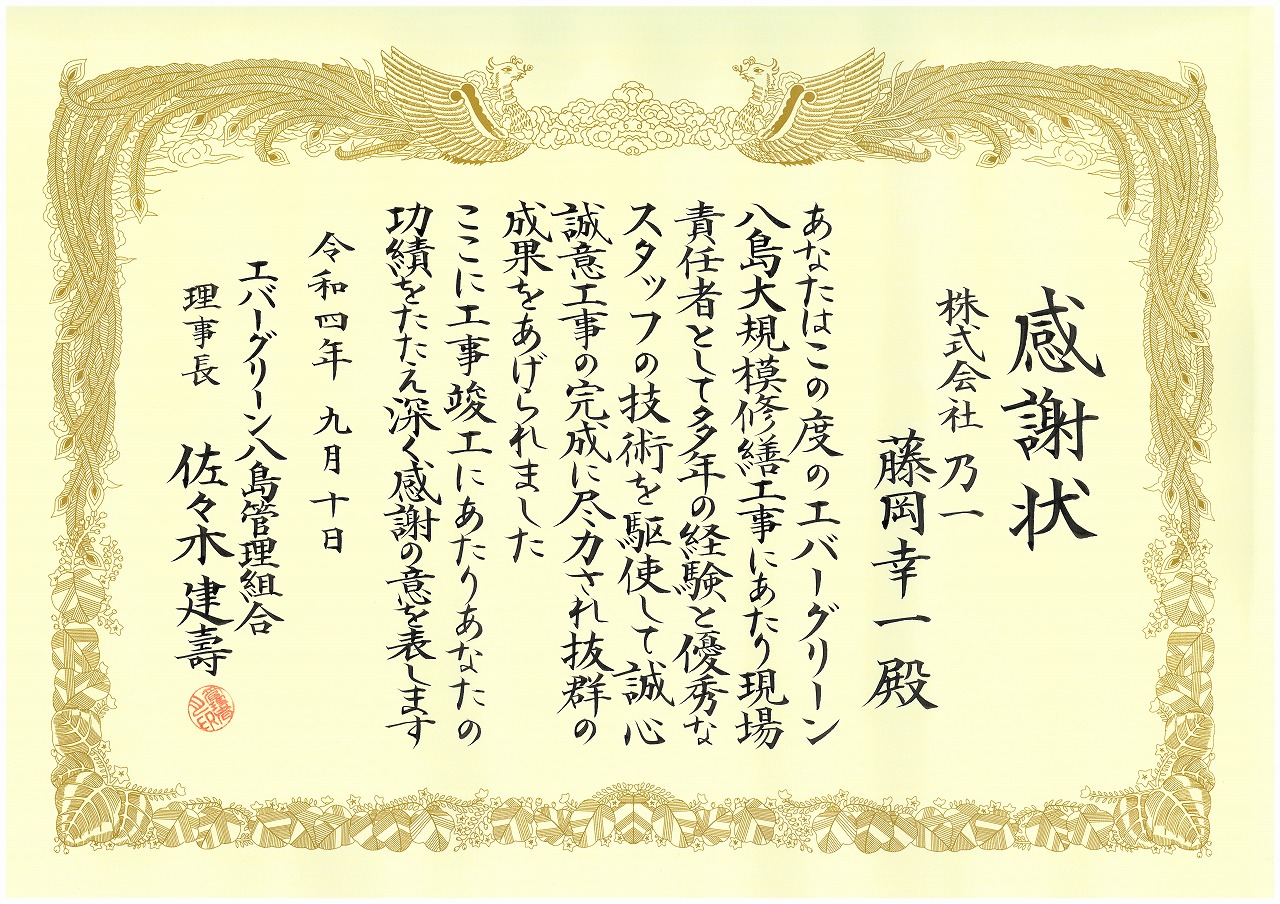 感謝状
株式会社 乃一
藤岡幸一殿
あなたはこの度のエバーグリーン
八島大規模修繕工事にあたり現場
責任者として多年の経験と優秀な
スタッフの技術を駆使して誠心
誠意工事の完成に尽力され抜群の
成果をあげられました
ここに工事竣工にあたりあなたの
功績をたたえ深く感謝の意を表します
令和四年 九月十日
エバーグリーン八島管理組合
理事長 佐々木建壽